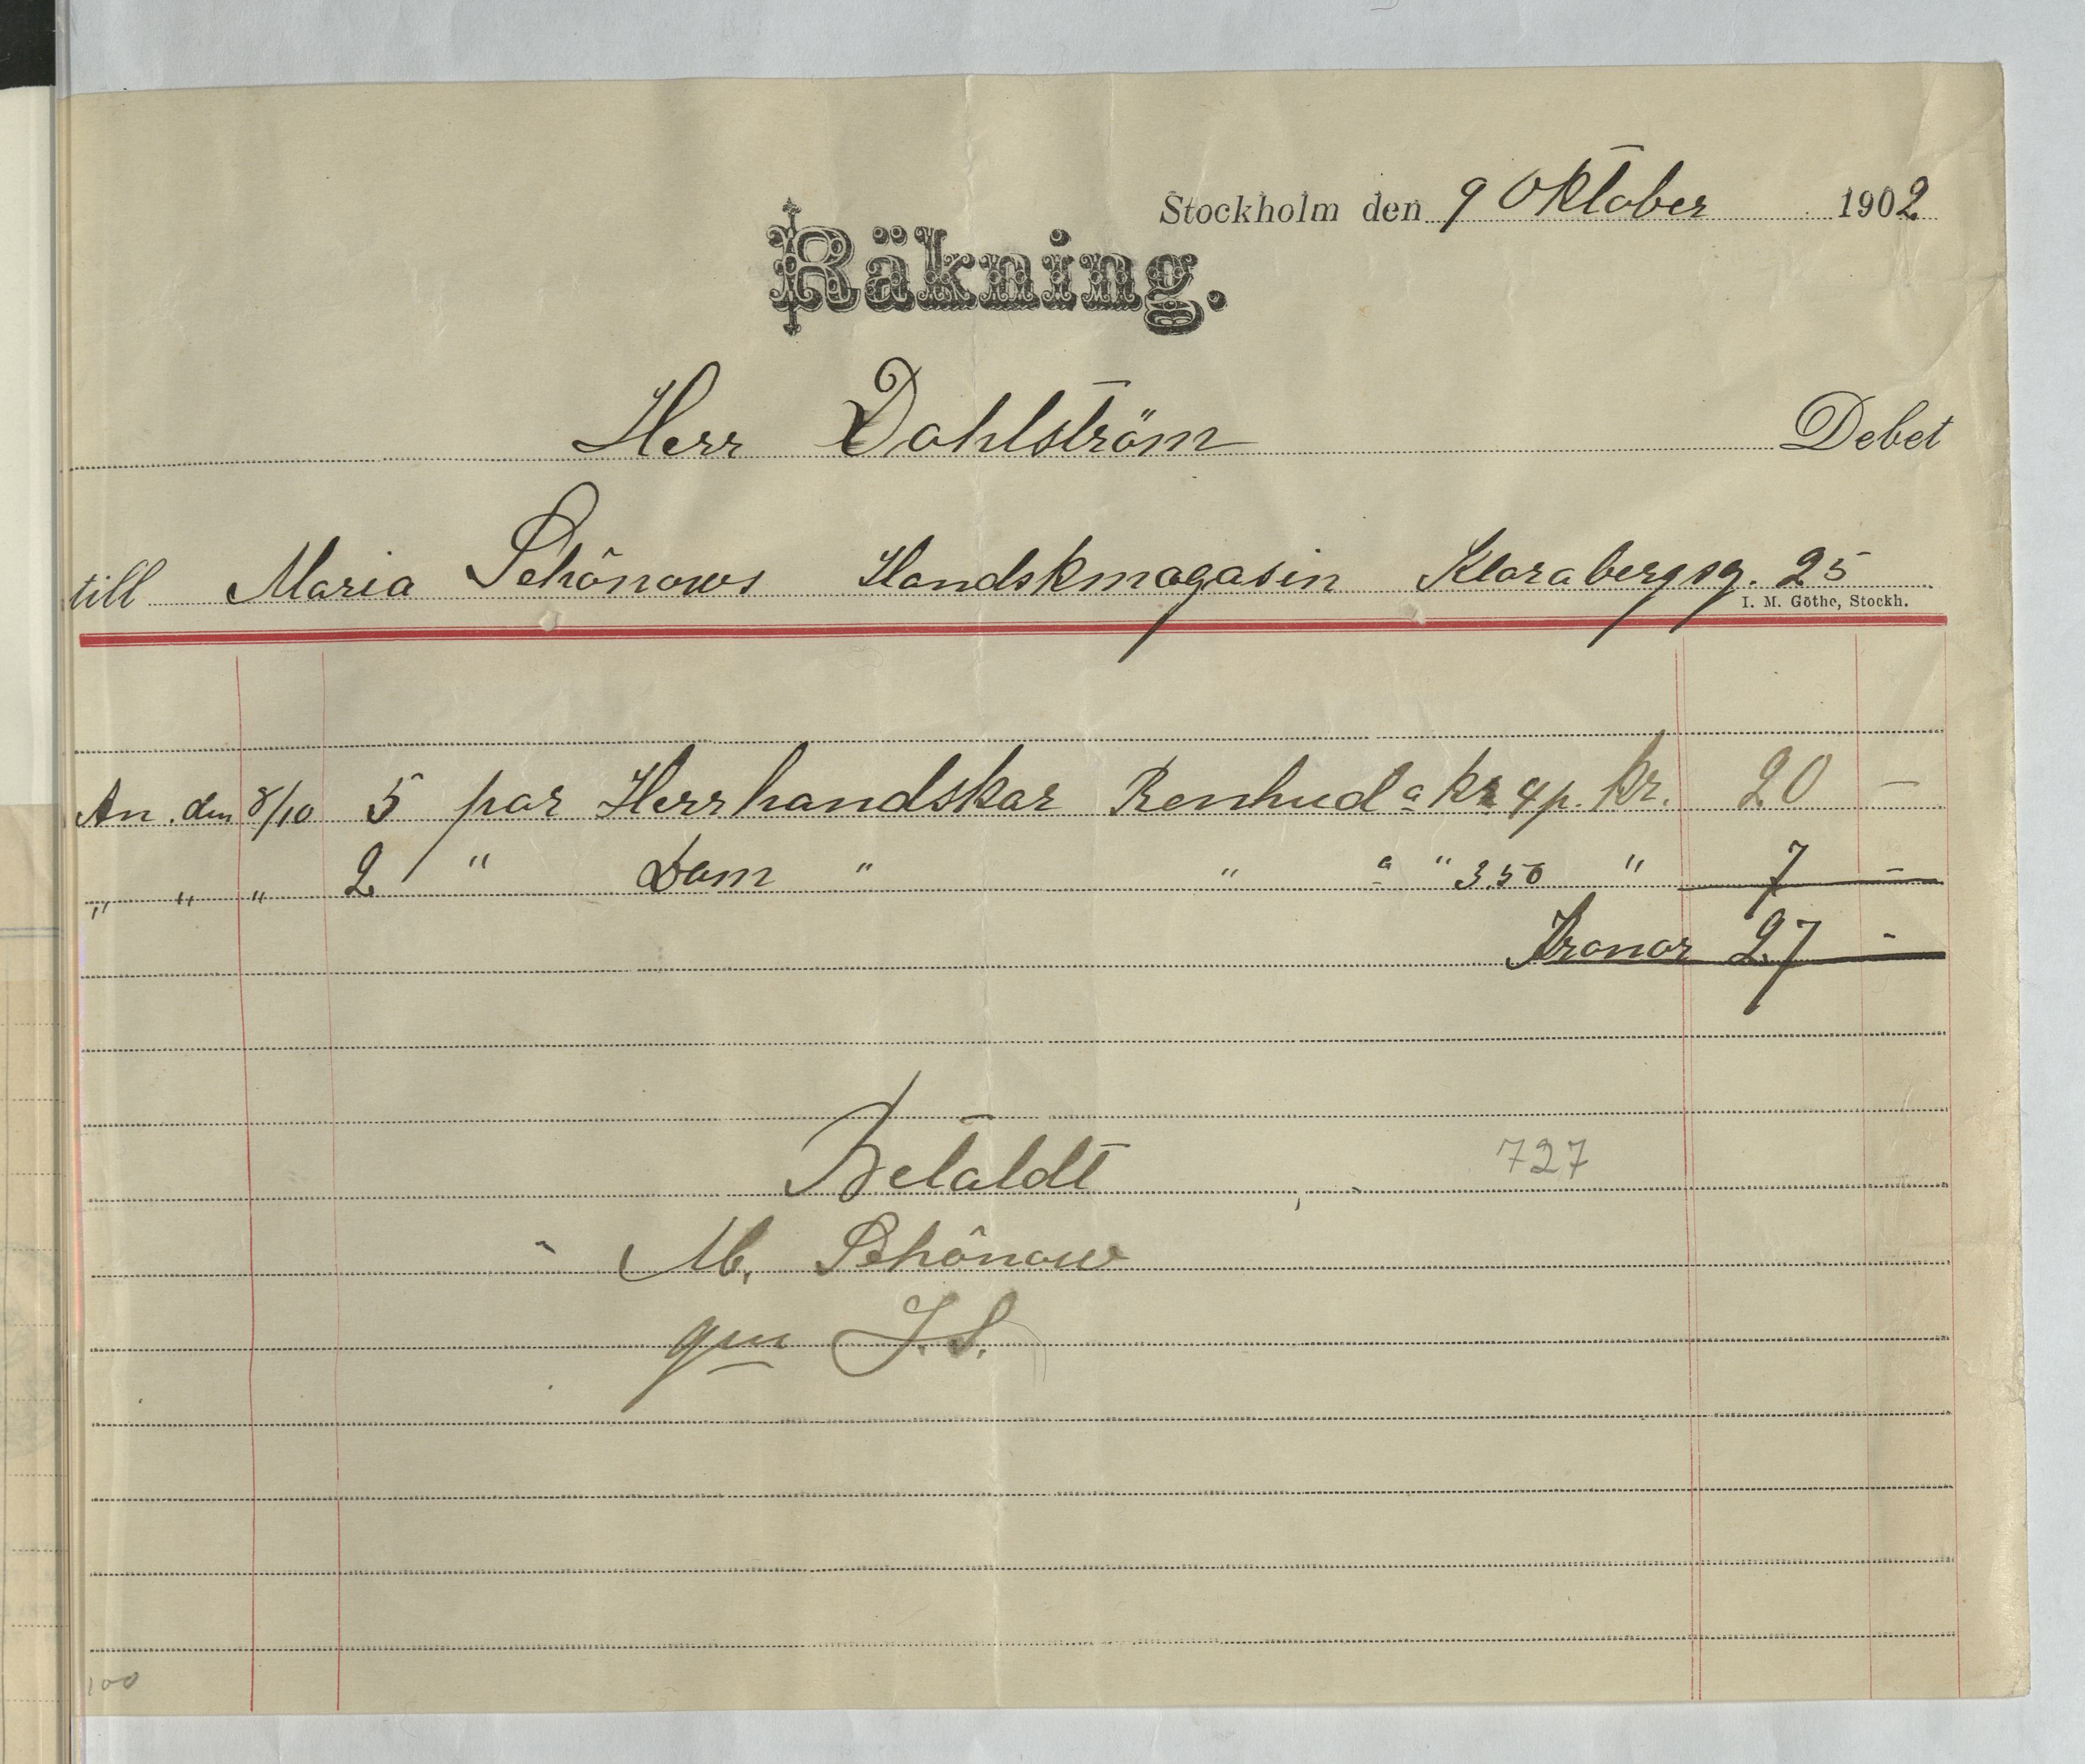 Stockholm den 9 Oktober 1902
Räkning.
Herr Dahlström Debet
till Maria Schönows Handskmagasin Klarabergsg. 25
I. M. Göthe, Stockh.
An. den 8/10 5 par Herrhandskar Renhud a kr 4 p. Kr. 20 —
" " " 2 " Dam " " a " 3.50 " 7 —
Kronor 27 -
Betaldt
727
M. Schönow
gm J. S.
100